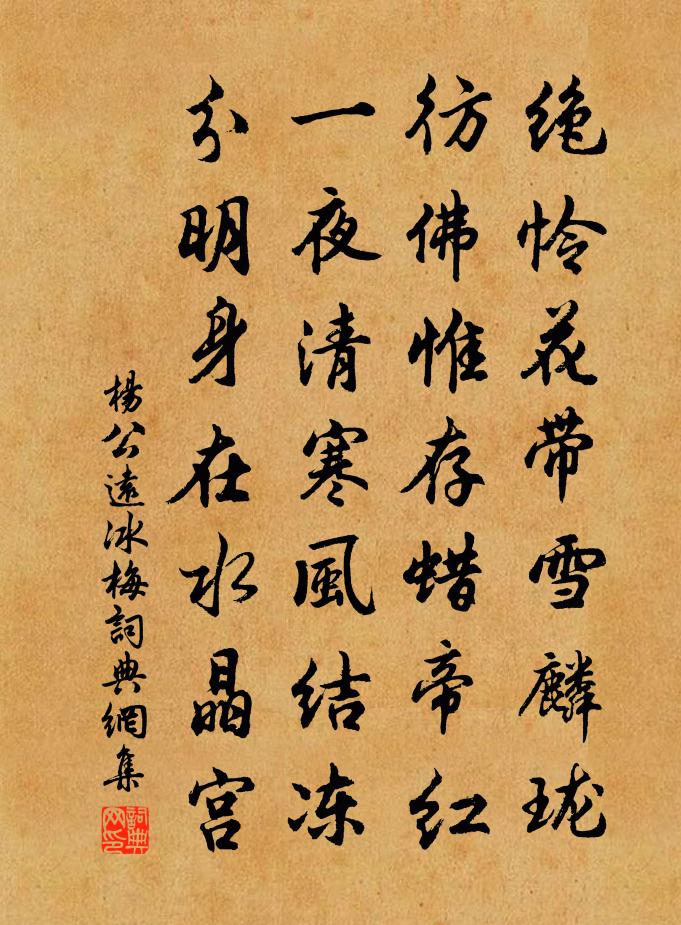 绝怜花带雪麟珑
彷佛惟存蜡帝红
一夜清寒風结冻
分明身在水晶宫
楊公遠冰梅詞典網集
詞典网印